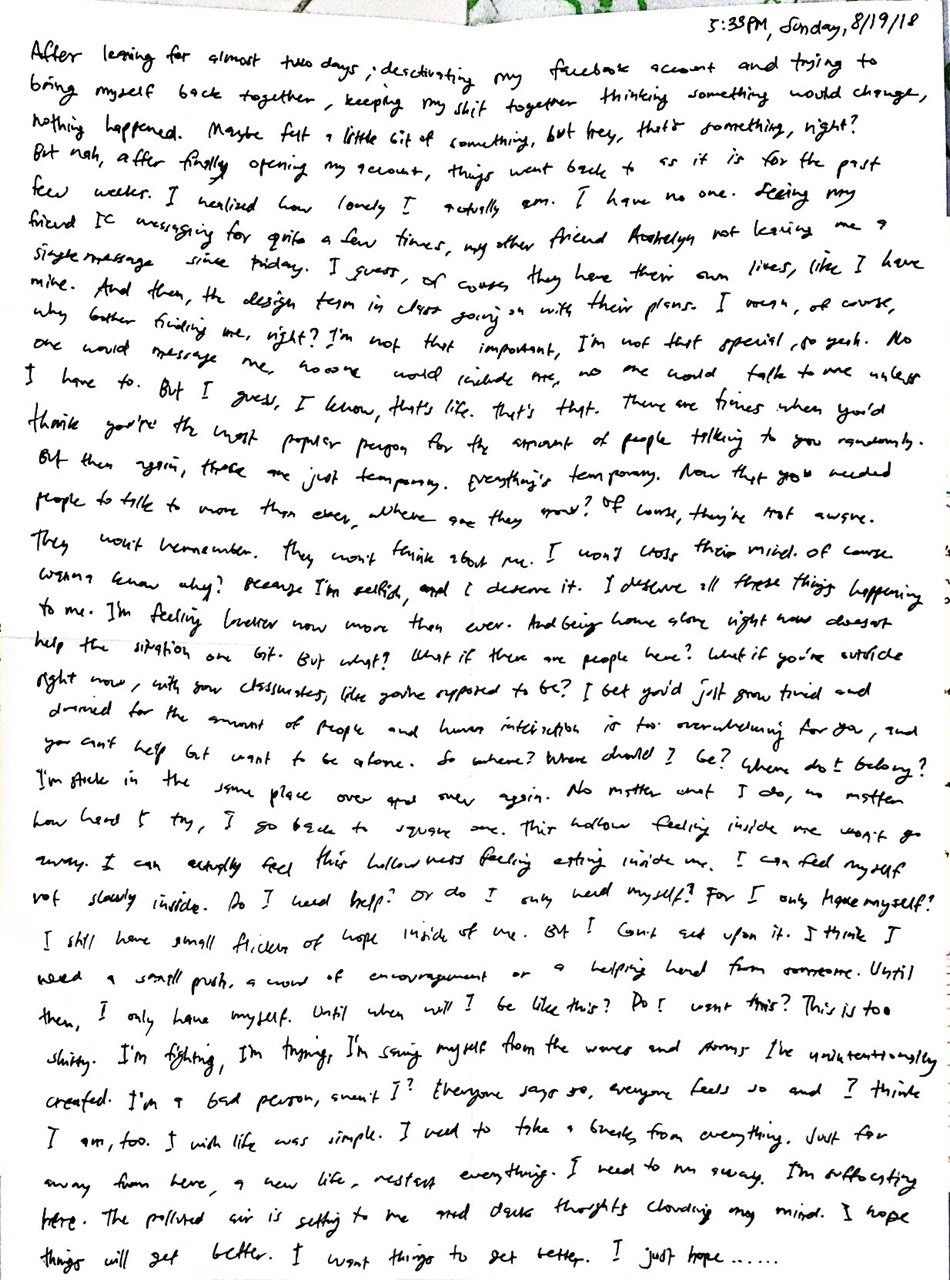 5:33PM, Sunday, 8/19/18
After leaving for almost two days, deactivating my facebook account and trying to
bring myself back together, keeping my shit together thinking something would change,
nothing happened. Maybe felt a little bit of something, but hey, that's something, right?
But nah, after finally opening my account, things went back to as it is for the past
few weeks. I realized how lonely I actually am. I have no one. Seeing my
friend IC messaging for quite a few times, my other friend not leaving me a
single message since Friday. I guess, of course they have their own lives, like I have
mine. And then, the design team in class going on with their plans. I mean, of course,
why bother finding me, right? I'm not that important, I'm not that special, so yeah. No
one would message me, no one would include me, no one would talk to me unless
I have to. But I guess, I know, that's life. That's that. There are times when you'd
think you're the most popular person for the amount of people talking to you randomly.
But then again, those are just temporary. Everything's temporary. Now that you needed
people to talk to more than ever, where are they now? Of course, they're not aware.
They won't remember. They won't think about me. I won't cross their mind. Of course
wanna know why? Because I'm selfish, and I deserve it. I deserve all these things happening
to me. I'm feeling lonelier now more than ever. And being home alone right now doesn't
help the situation one bit. But what? What if there are people here? What if you're outside
right now, with your classmates, like you're supposed to be? I bet you'd just grow tired and
drained for the amount of people and human interaction is too overwhelming for you, and
you can't help but want to be alone. So where? Where should I be? Where do I belong?
I'm stuck in the same place over and over again. No matter what I do, no matter
how hard I try, I go back to square one. This hollow feeling inside me won't go
away. I can actually feel this hollowness feeling eating inside me. I can feel myself
rot slowly inside. Do I need help? Or do I only need myself? For I only have myself?
I still have small flickers of hope inside of me. But I can't act upon it. I think I
need a small push, a word of encouragement or a helping hand from someone. Until
then, I only have myself. Until when will I be like this? Do I want this? This is too
shitty. I'm fighting, I'm trying, I'm saving myself from the waves and storms I've unintentionally
created. I'm a bad person, aren't I? Everyone says so, everyone feels so and I think
I am, too. I wish life was simple. I need to take a break from everything. Just far
away from here, a new life, restart everything. I need to run away. I'm suffocating
here. The polluted air is getting to me and dark thoughts clouding my mind. I hope
things will get better. I want things to get better. I just hope......